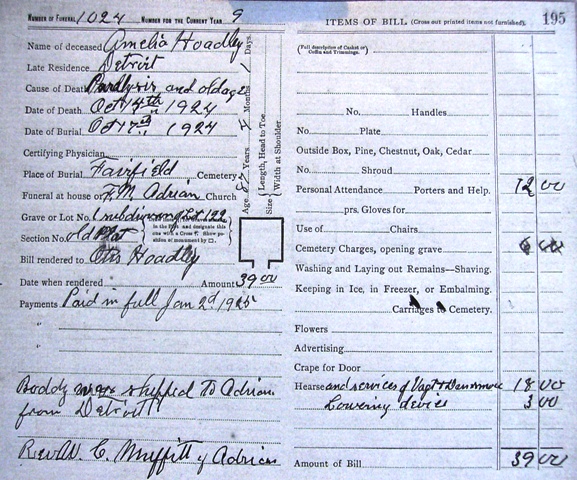 NUMBER OF FUNERAL 1024 NUMBER FOR THE CURRENT YEAR 9
Name of deceased Amelia Hoadley
Late Residence Detroit
Cause of Death Paralysis and oldage
Date of Death Oct 14th 1924
Date of Burial Oct 17th 1924
Certifying Physician
Place of Burial Fairfield Cemetery
Funeral at house or F.M. Adrian Church
Grave or Lot No. 1 subdivision Lot 122
Section No. old Plat
In the Plot and designate this one with a Cross. Show position of monument by
Bill rendered to Otis Hoadley
Date when rendered Amount 39 00
Payments Paid in full Jan 2d 1925
"
"
Boddy was shipped to Adrian
from Detroit
Rev W. C. Muffitt of Adrian
Age Years Months Days
Size Length, Head to Toe
Width at Shoulder
ITEMS OF BILL (Cross out printed items not furnished) 195
(Full description of Casket or Coffin and Trimmings.)
No. Handles
No. Plate
Outside Box, Pine, Chestnut, Oak, Cedar
No. Shroud
Personal Attendance Porters and Help. 12 00
prs. Gloves for
Use of Chairs
Cemetery Charges, opening grave 6 00
Washing and Laying out Remains—Shaving.
Keeping in Ice, in Freezer, or Embalming.
Carriages to Cemetery.
Flowers
Advertising
Crape for Door
Hearse and services of Vagt & Densmore 18 00
Lowering device 3 00
Amount of Bill 39 00